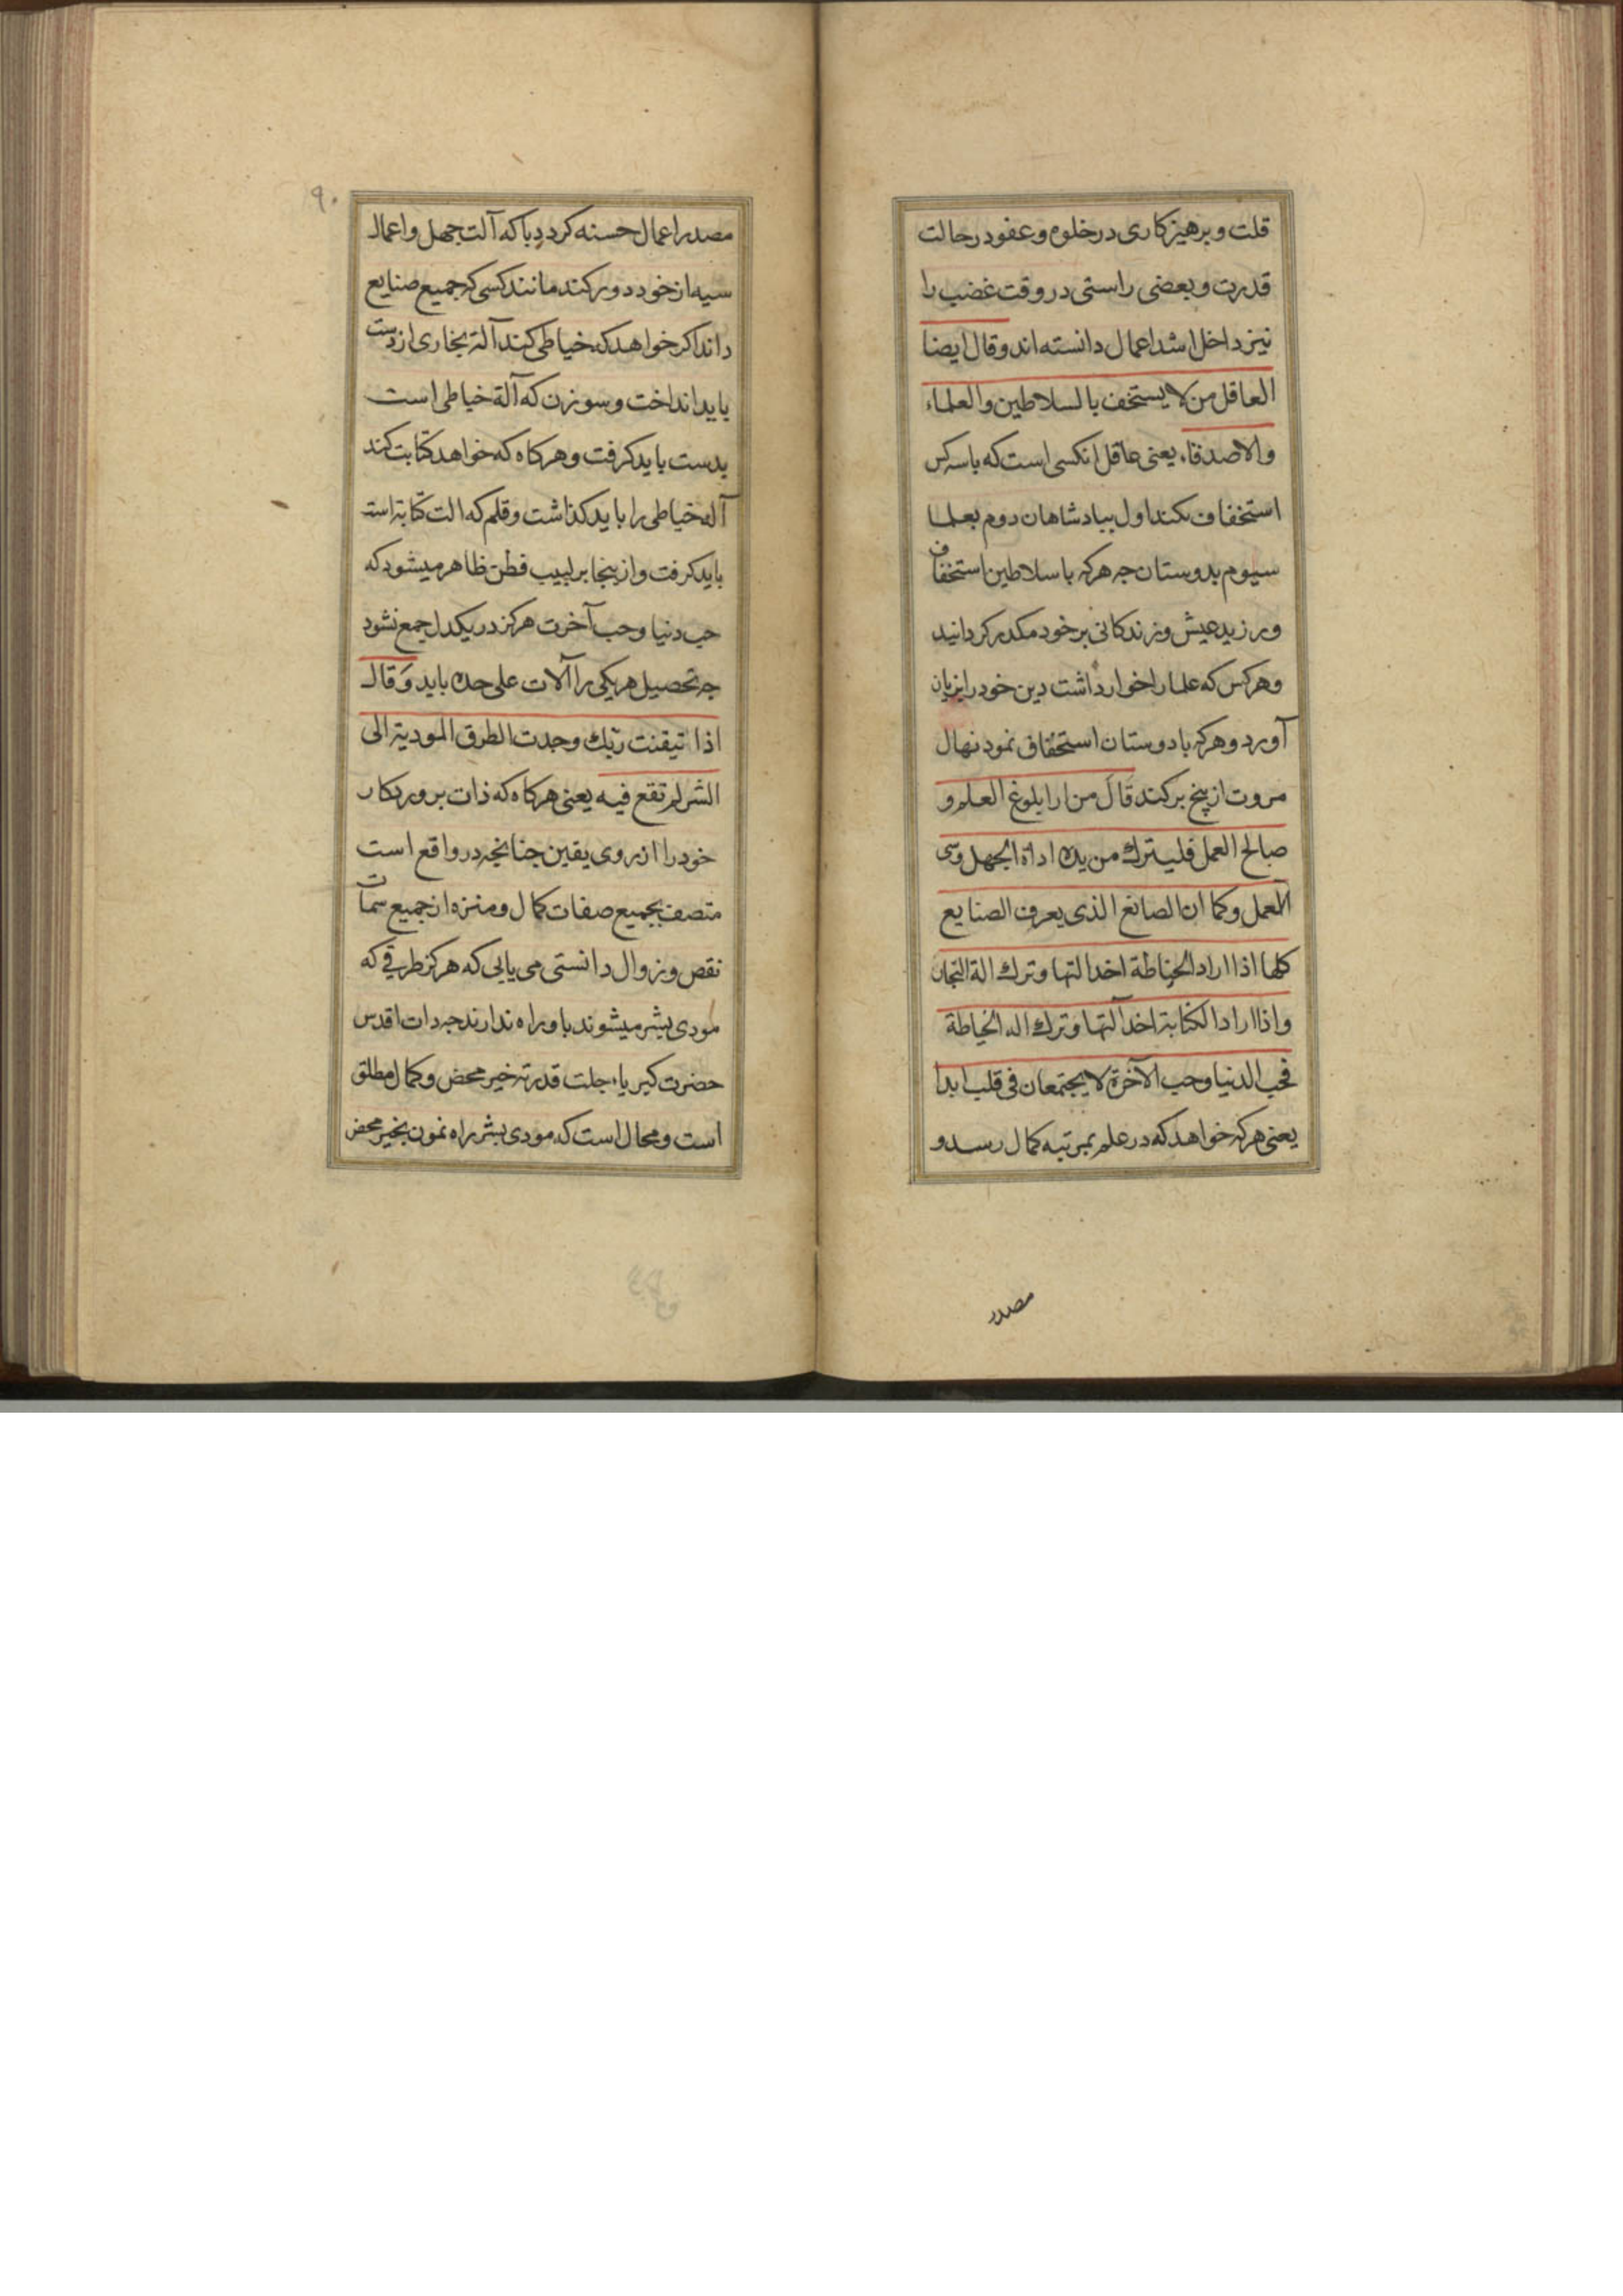 قلت و برهیزکاری در خلوه و عفو در حالت
قدرت و بعضی راستی در وقت غضب را
نیز داخل اشد اعمال دانسته اند وقال ایضا
العاقل من لا یستخف بالسلاطین والعلماء
والاصدقاء یعنی عاقل انکسی است که باسه کس
استخفاف نکند اول ببادشاهان دوم بعلما
سیوم بدوستان جه هرکه با سلاطین استخفاف
ورزید عیش و زندکانی بر خود مکدر کردانید
و هر کس که علما را خوار داشت دین خود را بزیان
آورد و هرکه با دوستان استخفاف نمود نهال
مروت از بیخ برکند قال من اراد بلوغ العلم و
صالح العمل فلیترك من یده اداة الجهل وسی
العمل وکما ان الصانع الذی یعرف الصنایع
کلها اذا اراد الخیاطة اخد التها وترك الة النجار
واذا اراد الکتابة اخد آلتها وترك اله الخیاطة
فحب الدنیا وحب الآخرة لا یجتمعان فی قلب ابدا
یعنی هرکه خواهد که در علم بمرتبه کمال رسد و
مصدر
۹۰
مصدر اعمال حسنه کردد باکه آلت جهل و اعمال
سیه از خود دور کند مانند کسی که جمیع صنایع
داند اکر خواهد که خیاطی کند آلة نجاری از دست
باید انداخت و سوزن که آلة خیاطی است
بدست باید کرفت و هرکاه که خواهد کتابت کند
آله خیاطی را باید کذاشت و قلم که الت کتابة است
باید کرفت و ازینجا بر لبیب فطن ظاهر میشود که
حب دنیا و حب آخرت هرکز در یکدل جمع نشود
جه تحصیل هر یکی را آلات علی حده باید وقال
اذا تیقنت ربك وجدت الطرق المودیة الی
الشر لم تقع فیه یعنی هرکاه که ذات بروردکار
خود را از روی یقین جنانجه در واقع است
متصف بجمیع صفات کمال و منزه از جمیع سمات
نقص و زوال دانستی می یابی که هرکز طرقی که
مودی بشر میشوند باو راه ندارند جه دات اقدس
حضرت کبریاء جلت قدرته خیر محض و کمال مطلق
است و محال است که مودی بشر راه نمون بخیر محض